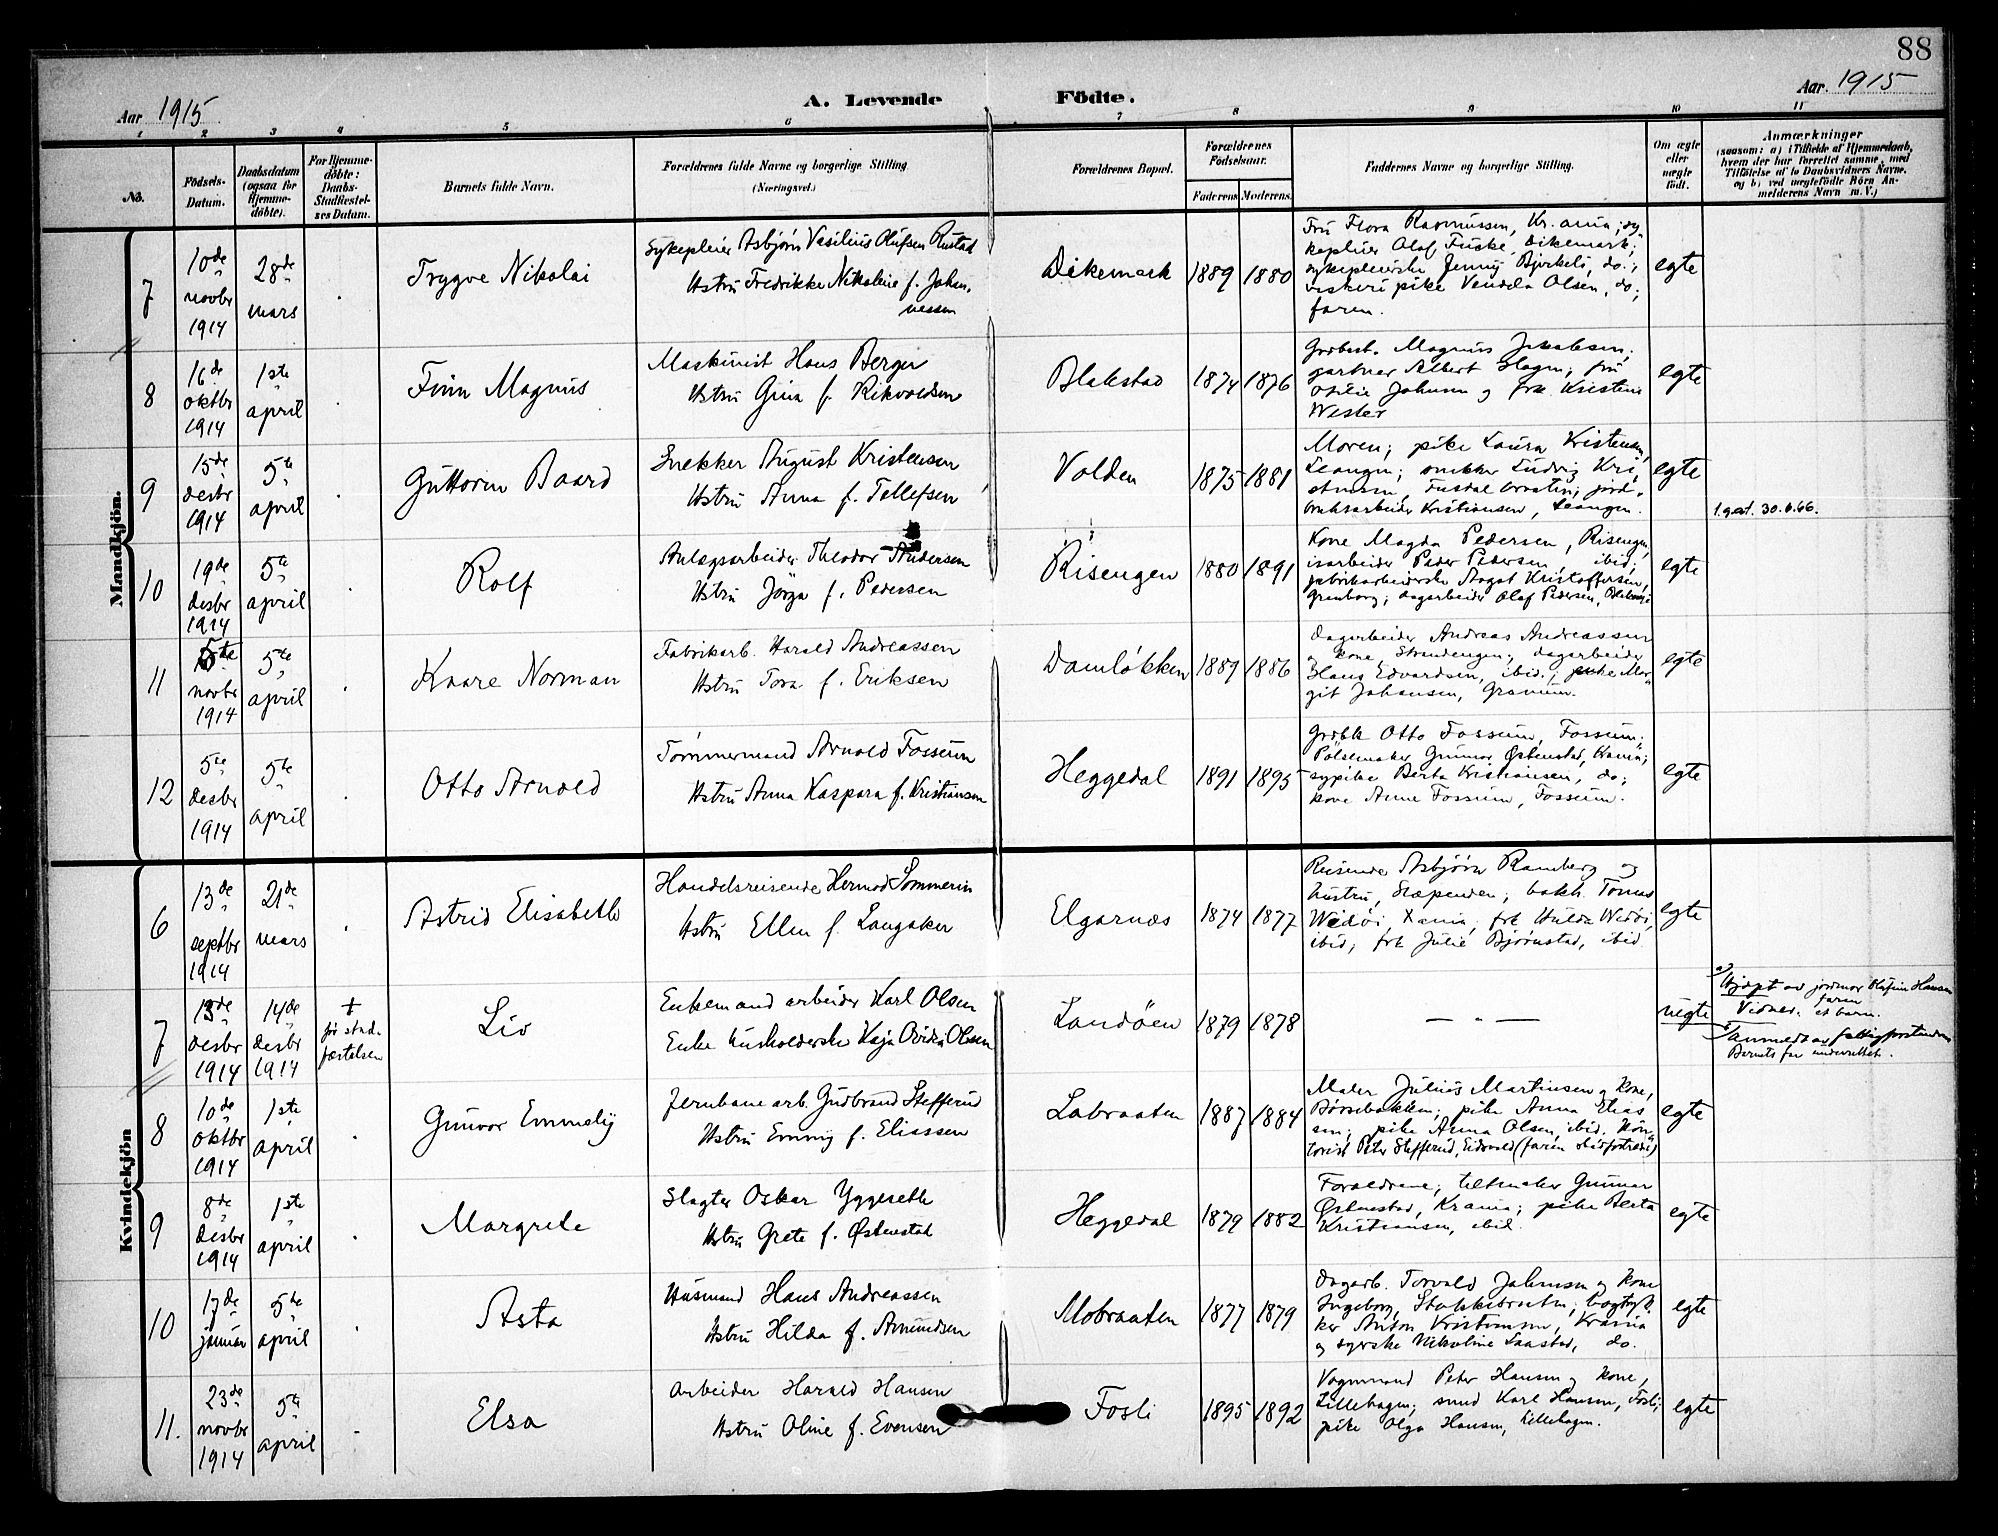 88
Aar 1915
A. Levende Födte.
Aar. 1915
1 2 3 4 5 6 7 8 9 10 11
No.
Födsels-
Datum.
Daabsdatum
(ogsaa for
Hjemme-
döbte).
For Hjemme-
döbte:
Daabs-
Stadfæstel-
ses Datum.
Barnets fulde Navn.
Forældrenes fulde Navne og borgerlige Stilling
(Næringsvei.)
Forældrenes Bopæl.
Forældrenes
Födselsaar.
Faderens Moderens.
Faddernes Navne og borgerlige Stilling.
Om ægte
eller
uægte
født.
Anmærkninger
(saasom: a) i Tilfælde af Hjemmedaab,
hvem der har forrettet samme, med
Tilföielse af to Daabsvidners Navne.
og b) ved uægtefödte Börn An-
melderens Navn m. V.)
Mandkjön.
7
10de
novbr
1914
28de
mars
Tryggve Nikolai
Sykepleier Asbjörn Vasilius Olufsen Rustad
Hstru Fredrikke Nikoleine f. Johan-
nessen
Dikemark
1889 1880
Fru Flora Rasmussen, Kr.ania; sy-
kepleier Olaf Fucke, Dikemark;
sykepleierske Jenny Bjerkeli, do.;
vaskeripike Vendla Olsen, do;
faren.
egte
8
16de
oktbr
1914
1ste
april
Finn Magnus
Maskinist Hans Berger
Hstru Gina f. Rikvoldsen
Blakstad
1874 1876
Grdbest. Magnus Jakobsen;
gartner Albert Hagen; fru
Otilie Johnsen og frk. Kristine
Wester
egte
9
15de
desbr
1914
5te
april
Guttorm Baard
Snekker August Kristensen
Hstru Anna f. Tellefsen
Volden
1875 1881
Moren; pike Laura Kristensen,
Leangen; snekker Ludvig Kri-
stensen, Fusdal braaten; jord-
bruksarbeider Kristiansen, Leangen.
egte
l.gat. 30.6.66.
10
19de
desbr
1914
5te
april
Rolf
Anlægsarbeider Theodor Andersen
Hstru Jörga f. Pedersen
Risengen
1880 1891
Kone Magda Pedersen, Risengen,
isarbeider Peder Pedersen, ibid;
fabrikarbeiderske Aagot Kristoffersen,
Grønborg; dagarbeider Olaf Pedersen,
egte
11
5te
novbr
1914
5te
april
Kaare Norman
Fabrikarb. Harald Andreassen
Hstru Tora f. Eriksen
Damløkken
1889 1886
Dagarbeider Andreas Andreassen
og kone, Strandengen; dagarbeider
Hans Edvardsen, ibid.; pike Mar-
git Johansen, Granum.
egte
12
5te
desbr
1914
5te
april
Otto Arnold
Tømmermand Arnold Fossum
Hstru Anna Kaspara f. Kristiansen
Heggedal
1891 1895
Grdbr. Otto Fossum, Fossum;
Pølsemaker Gunnar Østenstad, Krania;
sypike Berta Kristiansen, do;
kone Anne Fossum, Fossum.
egte
Kvindekjön
6
13de
septbr
1914
21de
mars
Astrid Elisabeth
Handelsreisende Hermod Sommerin
Hstru Ellen f. Langaker
Elgarnæs
1874 1877
Reisende Asbjørn Ramberg og
hustru, Slæpenden; bokh. Tomas
Widøi, Xania; frk Hulda Widøi,
ibid; frk Julie Bjørnstad, ibid.
egte
7
13de
desbr
1914
14de
desbr
1914
†
før stad-
fæstelsen
Liv
Enkemand arbeider Karl Olsen
Enke husholderske Kaja Ovidia Olsen
Landöen
1879 1878
— „ —
uegte
a) Hjdpt av jordmor Olefine Hansen
Vidner: faren et barn.
b) Anmeldt av fattigforstanderen
Barnets far underrettet.
8
10de
oktbr
1914
1ste
april
Gunvor Emmely
Jernbanearb. Gudbrand Stefferud
Hstru Emmy f. Eliassen
Labraaten
1887 1884
Maler Julius Martinsen og kone,
Børsebakken; pike Anna Elias
sen; pike Anna Olsen, ibid. Kon-
torist Peter Stefferud, Eidsvold (faren stedfortræder)
egte
9
8de
desbr
1914
1ste
april
Margrete
Slagter Oskar Yggeseth
Hstru Grete f. Østenstad
Heggedal
1879 1882
Forældrene; Gunnar
Østenstad, Krania; pike Berta
Kristiansen, ibid.
egte
10
17de
januar
5te
april
Asta
Husmand Hans Andreassen
Hstru Hilda f. Amundsen
Mobraaten
1877 1879
Dagarb. Torvald Johnsen og kone
Ingeborg, Stokkebraaten; bogtryk-
ker Anton Kristensen, Krania
og syerske Nikoline Saastad, do.
egte
11.
23de
novbr
1914
5te
april
Elsa
Arbeider Harald Hansen
Hstru Oline f. Evensen
Fosli
1895 1892
Vognmand Peter Hansen og kone,
Lillehagen; smed Karl Hansen, Fosli;
pike Olga Hansen, Lillehagen.
egte